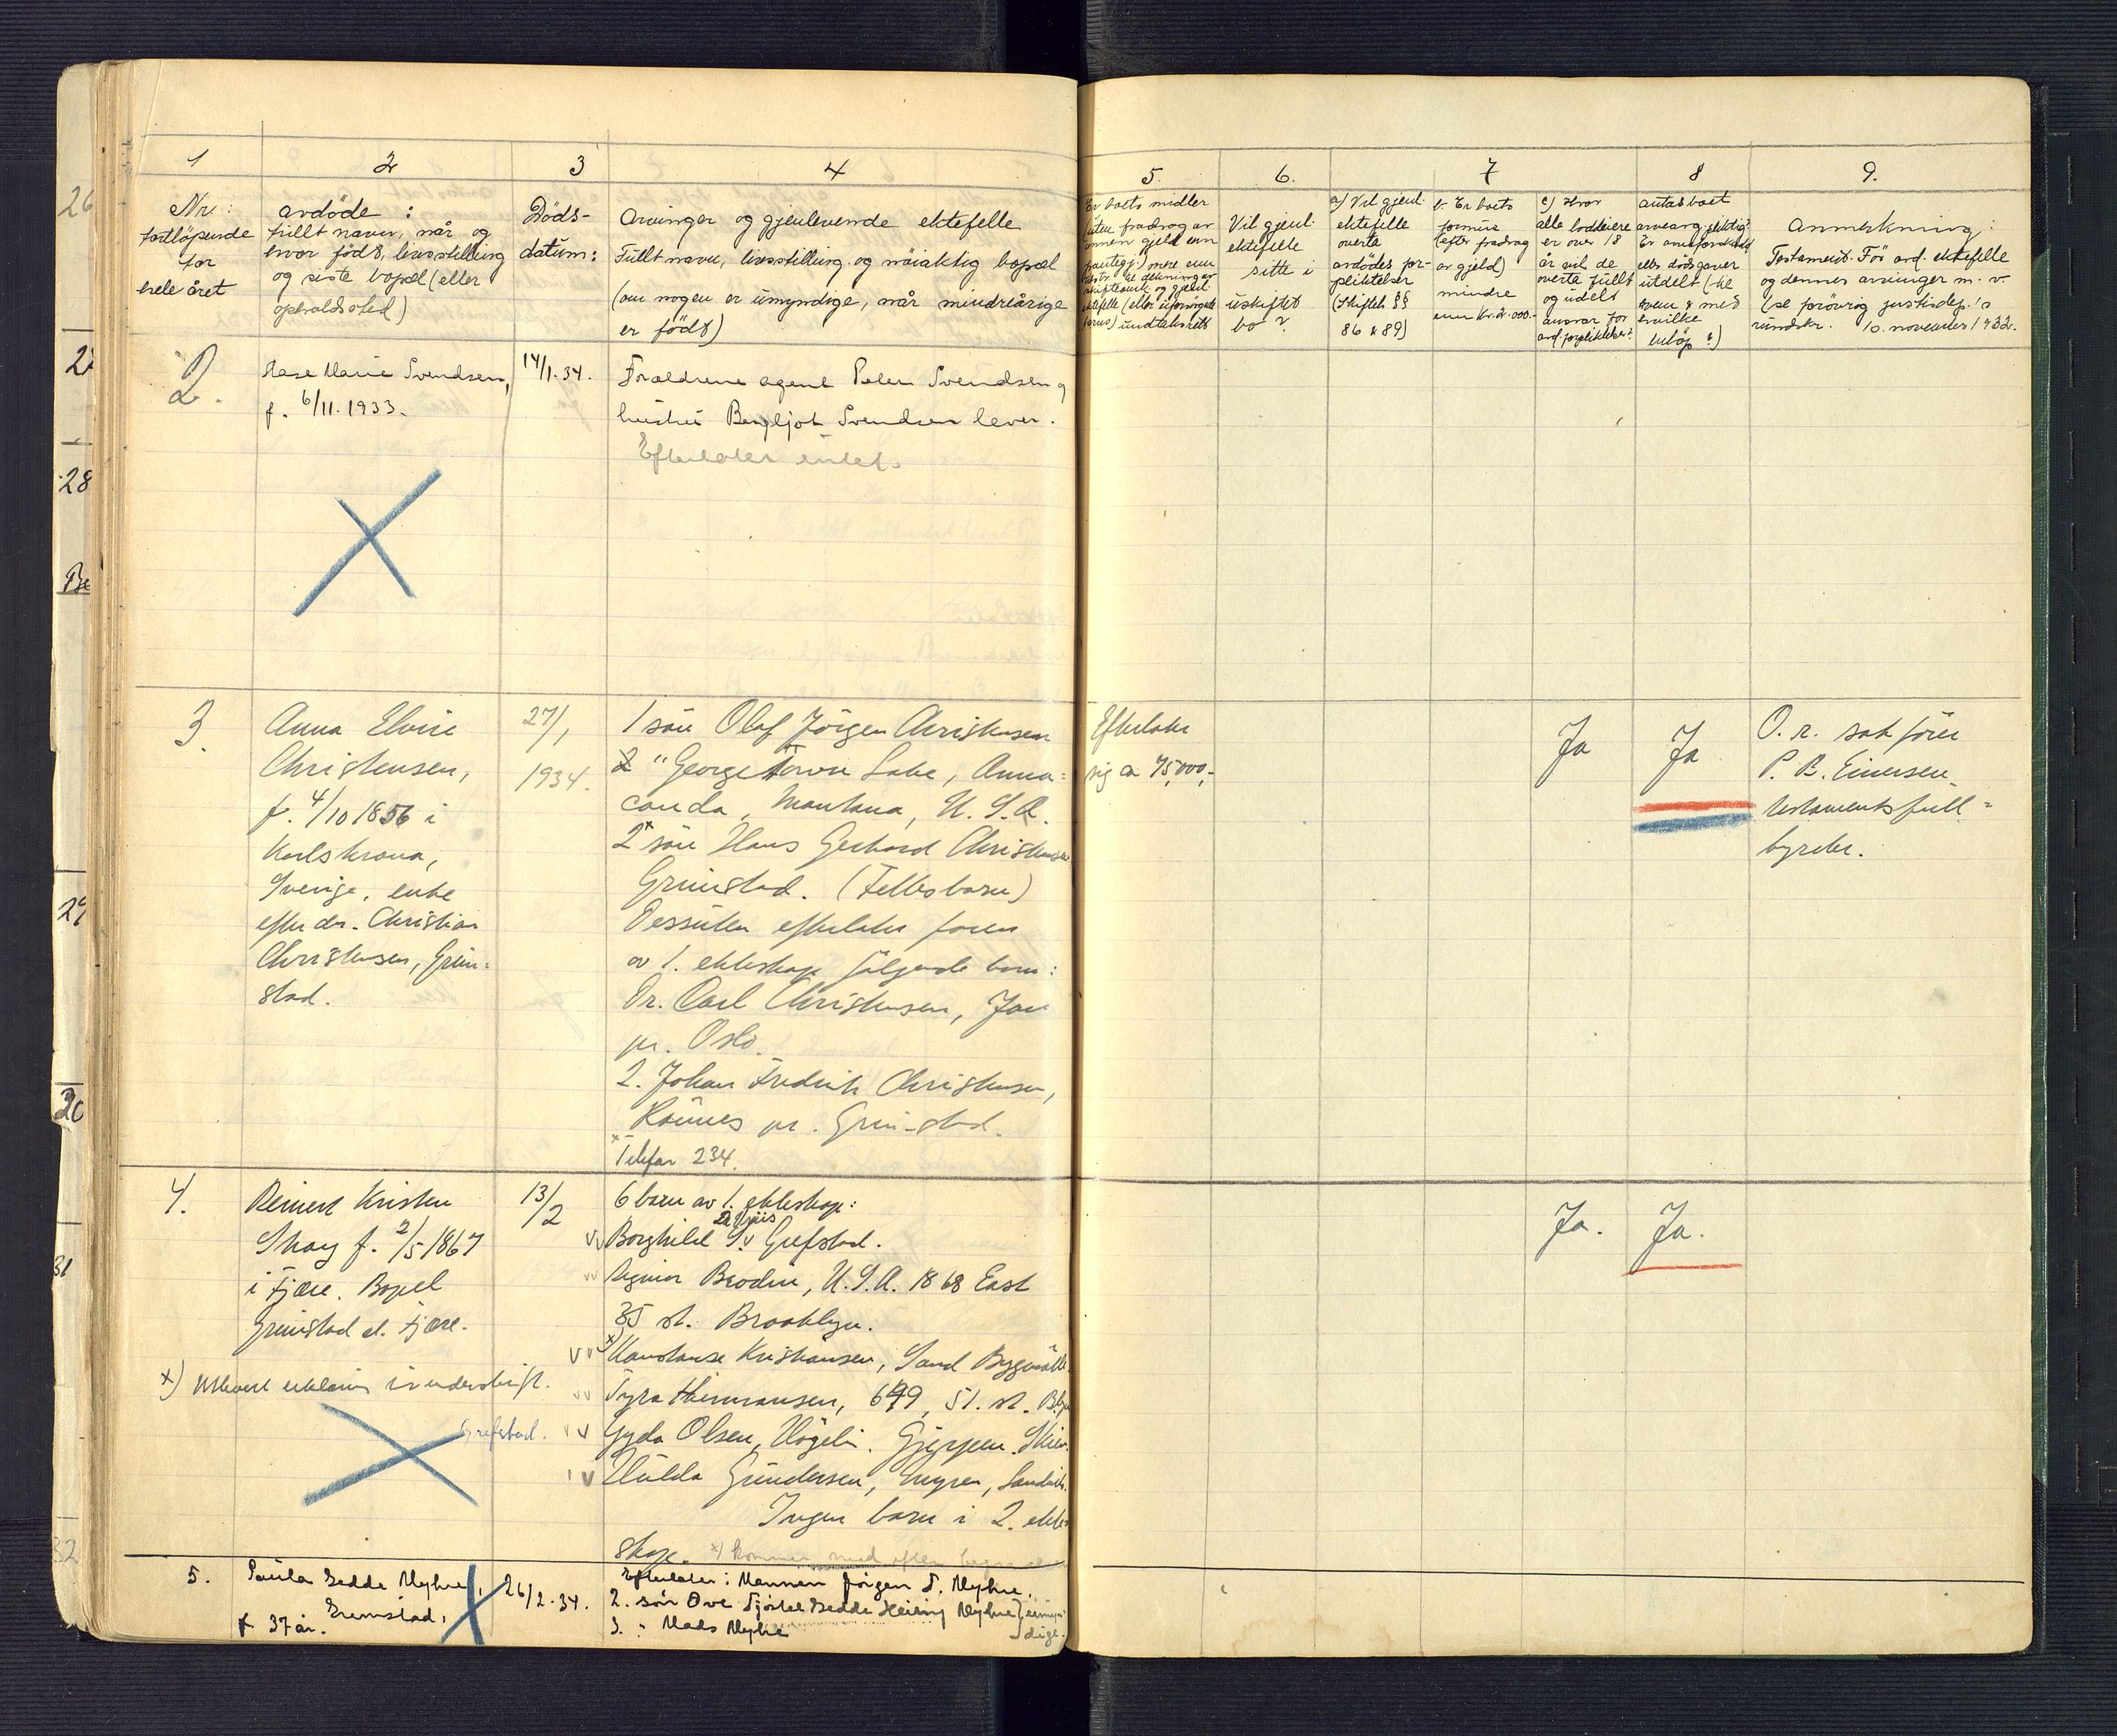 1 2 3 4 5. 6. 7 8 9.
Nr:
fortløpende
for
hele året
avdøde :
fullt navn, når og
hvor født, livsstilling
og siste bopel (eller
opholdssted)
Døds-
datum:
Arvinger og gjenlevende ektefelle
Fullt navn, livsstilling og nøiaktig bopæl
(om nogen er umyndige, når mindreårige
er født)
Er boets midler
uten fradrag av
annen gjeld enn
mere enn
Vil gjenl.
ektefelle
sitte i
uskiftet
bo ?
a) Vil gjenl.
ektefelle
overta
avdødes for-
pliktelser
(Skiftel. §§
86 & 89)
b. Er boets
formue
(efter fradrag
av gjeld)
mindre
enn kr.
c) Hvor
alle loddeiere
er over 18
år vil de
overta fullt
og udelt
ansvar for
avd. forpliktelser?
Antas boet
arveavg.pliktig?
eller dødsgaver
utdelt (til
hvem & med
hvilke
beløp ?)
Anmerkning :
Testament. För avd. ektefelle
og dennes arvinger m. v.
(se forøvrig justisdep.'s
rundskr. 10. november 1932.
2.
Aase Marie Svendsen,
f. 6/11. 1933.
14/1. 34.
Forældrene agent Peder Svendsen og
hustru Bergljot Svendsen lever.
Efterlater intet.
3.
Anna Elvire
Christensen,
f. 4/10 1856 i
Karlskrona,
Sverige, enke
efter dr. Christian
Christensen, Grim-
stad.
27/1
1934.
1 søn Olaf Jörgen Christensen
2 " Georgetown Lake, Anna-
conda, Montana, U. S. A.
2 x søn Hans Gerhard Christensen
Grimstad. (Fellesbarn)
Dessuten efterlater faren
av 1. ekteskap følgende barn:
Dr. Carl Christensen, Jar
pr. Oslo.
2. Johan Fredrik Christensen,
Rönnes pr. Grimstad.
x Telefon 234.
Efterlater
sig ca 75,000,-
Ja
Ja
O. r. sakfører
P. B. Einersen
testamentsfull-
byrder.
4.
Reinert Kristen
Skay f. 2/5 1867
i Fjære. Bopel
Grimstad el. Fjære.
13/2
x) erklæring i underskrift.
Grefstad.
6 barn av 1. ekteskap:
Borghild S. Grefstad.
Ragna Brodin, U. S. A. 1868 East
35 st. Brooklyn.
x) Konstanse Kristiansen, Sand
Tyra Hermansen, 649, 51. st.
Gyda Olsen, Gjerpen. Skien.
Hulda Gundersen, Myren,
Ingen barn i 2. ekte-
skap. x) kommer med efter
Ja.
Ja.
5.
Paula Gedde Myhre,
Grimstad,
f 37 år.
26/2. 34.
Efterlater: Mannen Jørgen T. Myhre.
2. søn Ove Gedde Myhre } umyn-
3. " Mads Myhre dige.
26
27
28
29
30
31
32